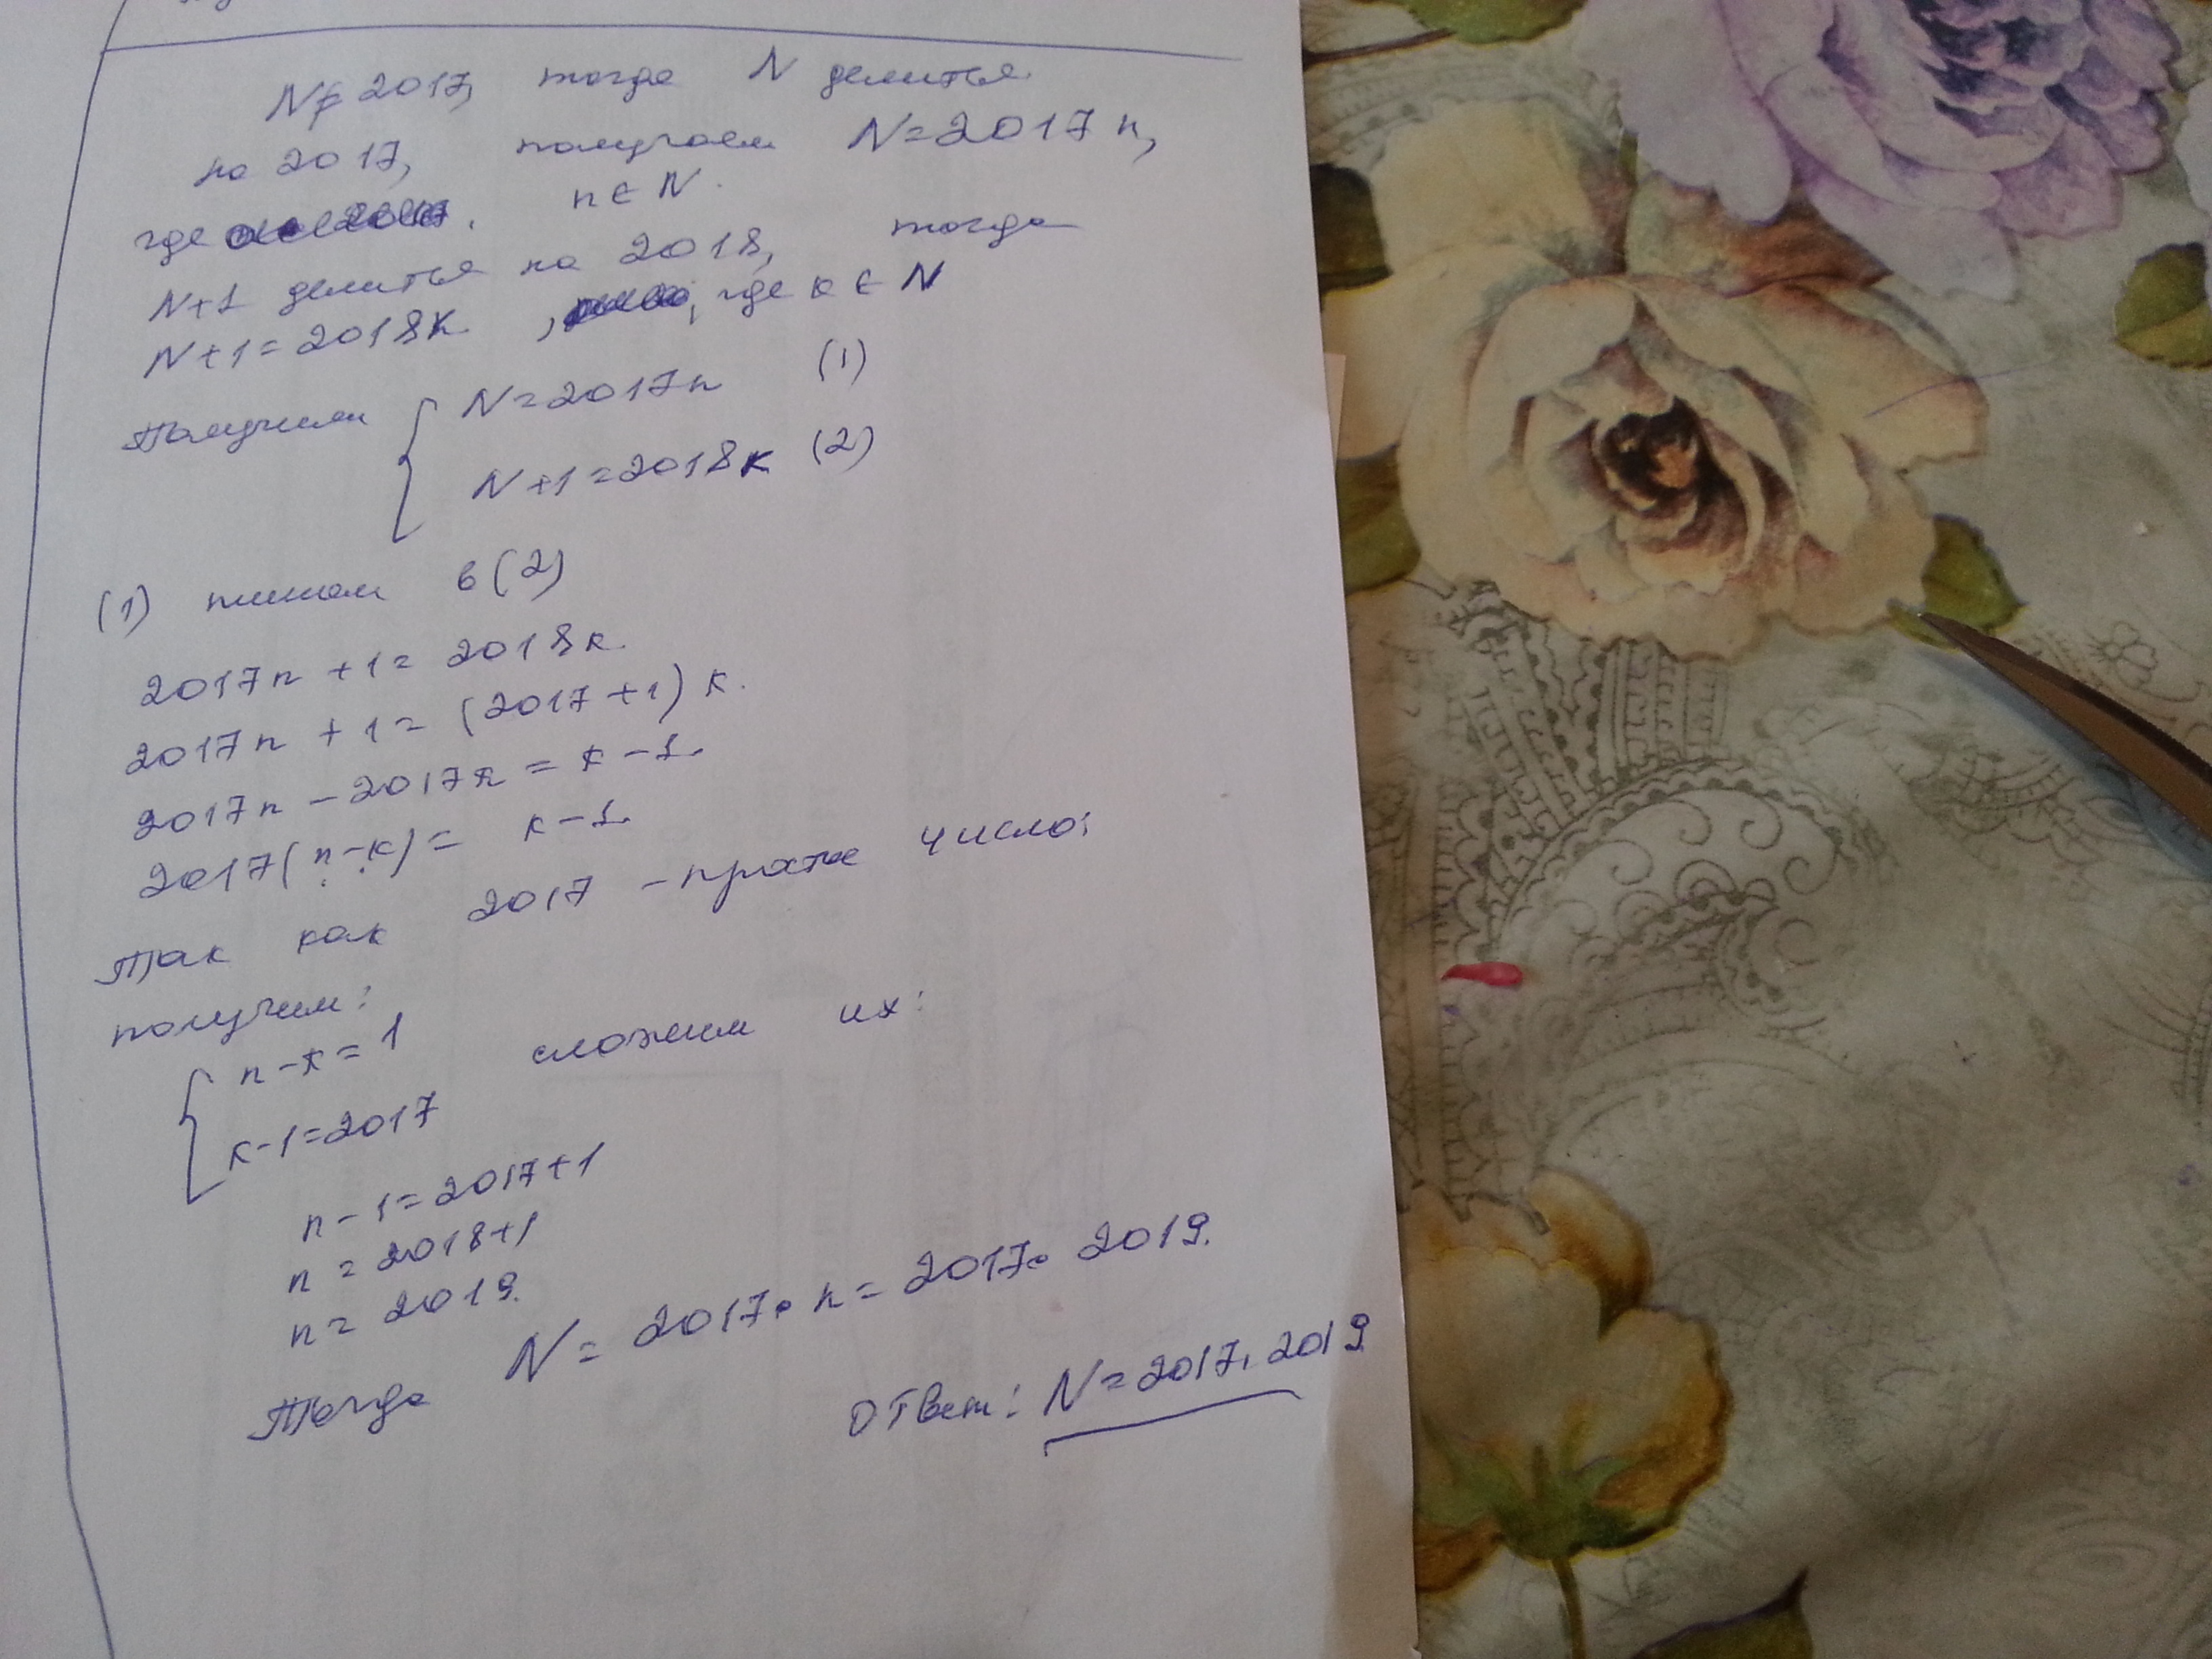 N≠2017, тогда N делиться
на 2017, получаем N=2017n,
где n∈N.
N+1 делиться на 2018, тогда
N+1=2018k, где k∈N
Получим { N=2017n (1)
N+1=2018k (2)
(1) пишем в (2)
2017n+1=2018k.
2017n+1=(2017+1)k.
2017n-2017k=k-1.
2017(n-k)=k-1.
Так как 2017 - простое число:
получим:
{ n-k=1 сложим их:
k-1=2017
n-1=2017+1
n=2018+1
n=2019.
Тогда N=2017·n=2017·2019.
Ответ: N=2017·2019